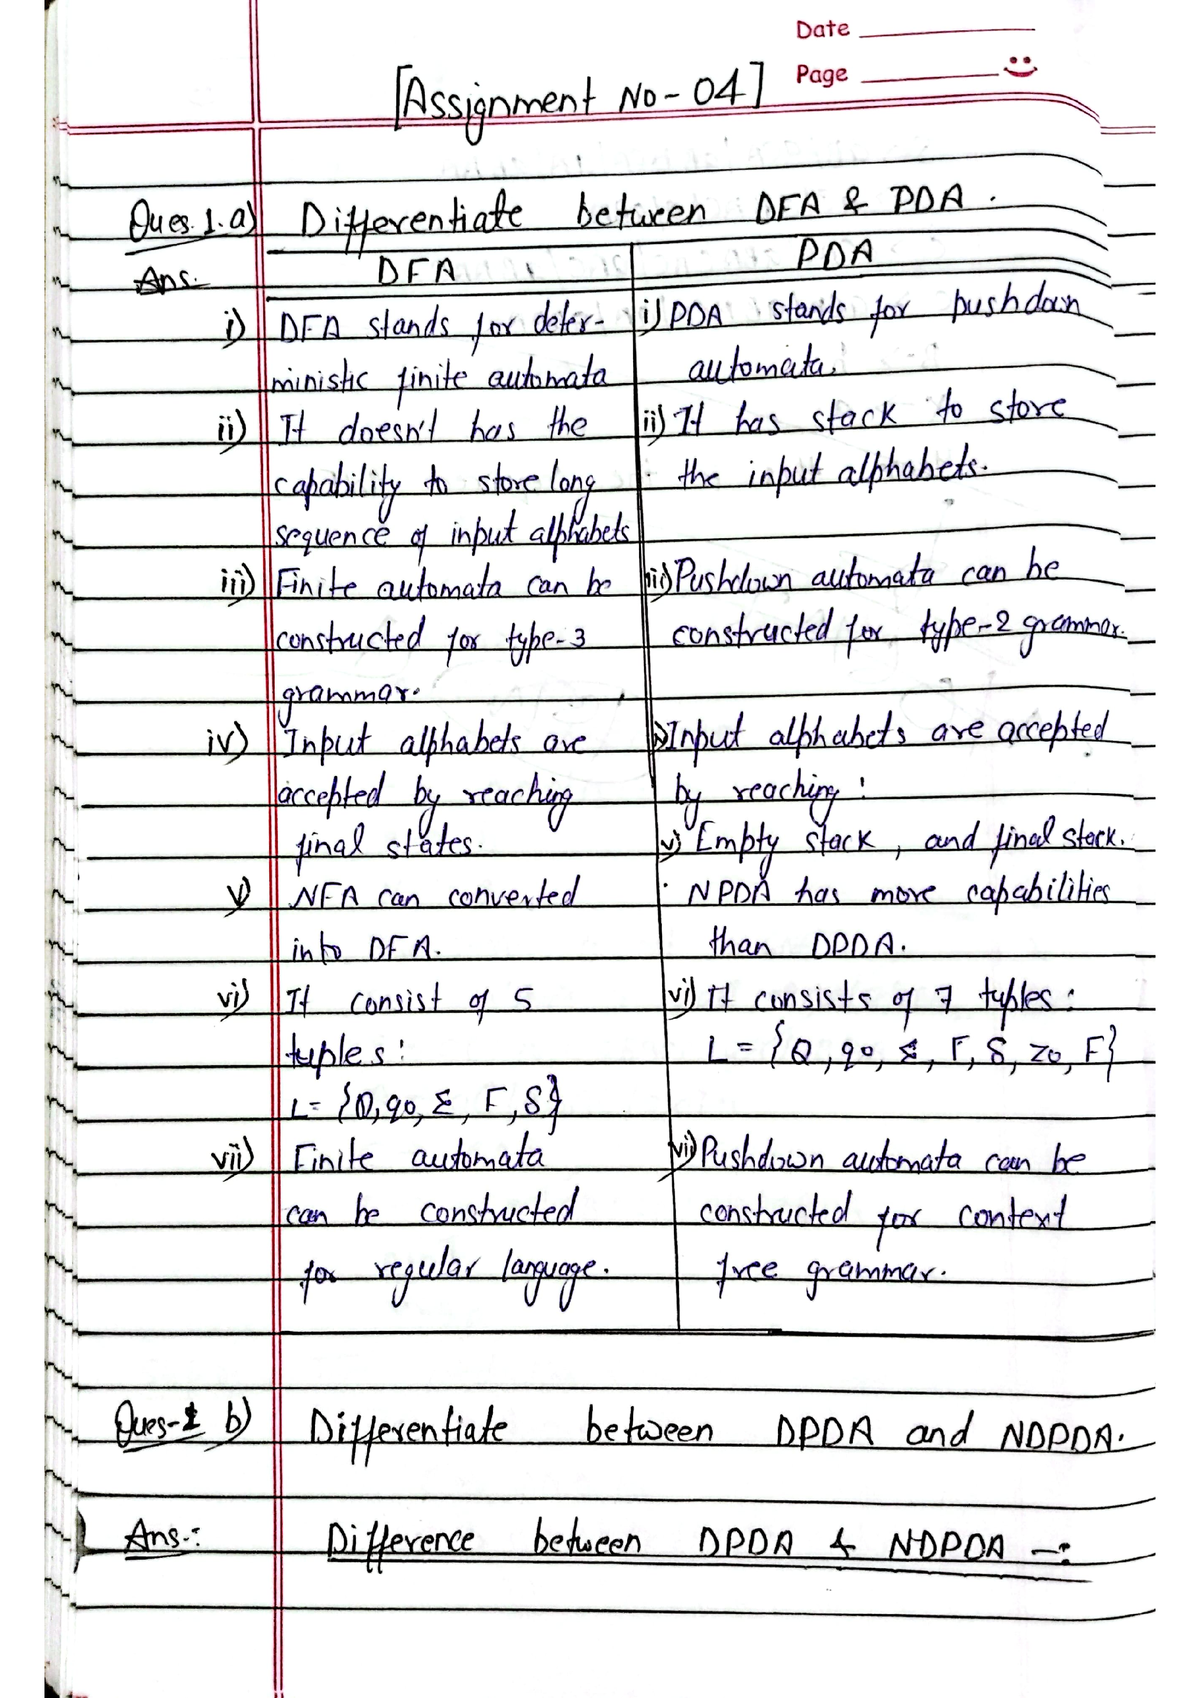 Date
Page
[Assignment No - 04]
Ques. 1. a) Differentiate between DFA & PDA.
Ans. DFA PDA
i) DFA stands for deter- i) PDA stands for pushdown
ministic finite automata automata.
ii) It doesn't has the ii) It has stack to store
capability to store long the input alphabets.
sequence of input alphabets
iii) Finite automata can be iii) Pushdown automata can be
constructed for type-3 constructed for type-2 grammar.
grammar.
iv) Input alphabets are Input alphabets are accepted
accepted by reaching by reaching :
final states. v) Empty stack, and final stack.
v) NFA can converted NPDA has more capabilities
into DFA. than DPDA.
vi) It consist of 5 vi) It consists of 7 tuples :
tuples : L = {Q, q0, Σ, Γ, δ, z0, F}
L = {Q, q0, Σ, F, δ}
vii) Finite automata vi) Pushdown automata can be
can be constructed constructed for context
for regular language. free grammar.
Ques-1 b) Differentiate between DPDA and NDPDA.
Ans-: Difference between DPDA & NDPDA -: